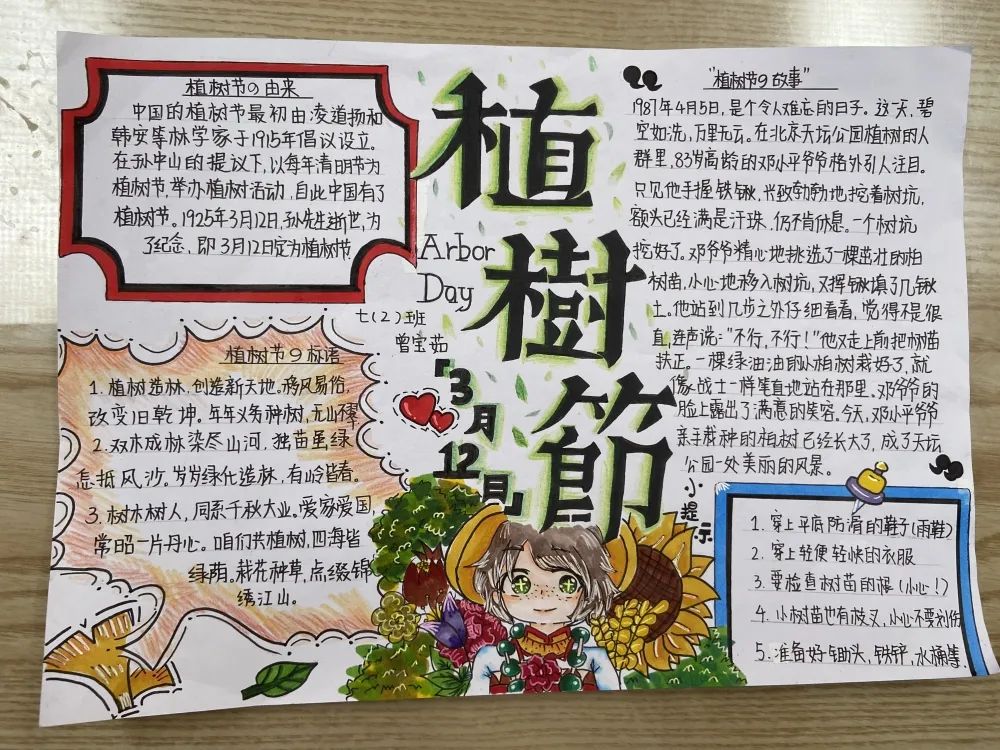 植树节的由来
中国的植树节最初由凌道扬和
韩安等林学家于1915年倡议设立。
在孙中山的提议下,以每年清明节为
植树节,举办植树活动,自此中国有了
植树节。1925年3月12日,孙先生逝世,为
了纪念,即3月12日定为植树节
植樹節
Arbor
Day
七(2)班
曾宝茹
「3
月
12
日」
"植树节的故事"
1987年4月5日,是个令人难忘的日子。这天,碧
空如洗,万里无云。在北京天坛公园植树的人
群里,83岁高龄的邓小平爷爷格外引人注目。
只见他手握铁锹,兴致勃勃地挖着树坑,
额头已经满是汗珠,仍不肯休息。一个树坑
挖好了。邓爷爷精心地挑选了一棵茁壮的柏
树苗,小心地移入树坑,又挥锹填了几锹
土。他站到几步之外仔细看看,觉得不是很
直,连声说:"不行,不行!"他又走上前把树苗
扶正。一棵绿油油的小柏树栽好了,就
像战士一样笔直地站在那里。邓爷爷的
脸上露出了满意的笑容。今天,邓小平爷爷
亲手栽种的柏树已经长大了,成了天坛
公园一处美丽的风景。
植树节的标语
1. 植树造林,创造新天地。移风易俗,
改变旧乾坤。年年义务种树,无山不翠
2. 双木成林染尽山河,独苗虽绿
怎抵风沙。岁岁绿化造林,有岭皆春。
3. 树木树人,同系千秋大业。爱家爱国,
常昭一片丹心。咱们共植树,四海皆
绿荫。栽花种草,点缀锦
绣江山。
小提示
1. 穿上平底防滑的鞋子(雨鞋)
2. 穿上轻便轻快的衣服
3. 要检查树苗的根(小心!)
4. 小树苗也有枝叉,小心不要刺伤
5. 准备好锄头,铁锹,水桶等.